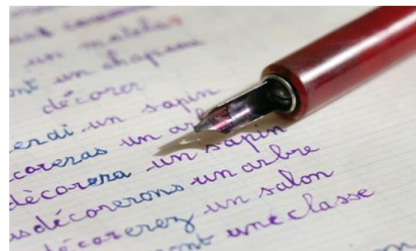 un matelas
ont un chapeau
décorer
erdi un sapin
coreras un arb
décorera un sapin
usdécorerons un arbre
décorerez un salon
ront une classe